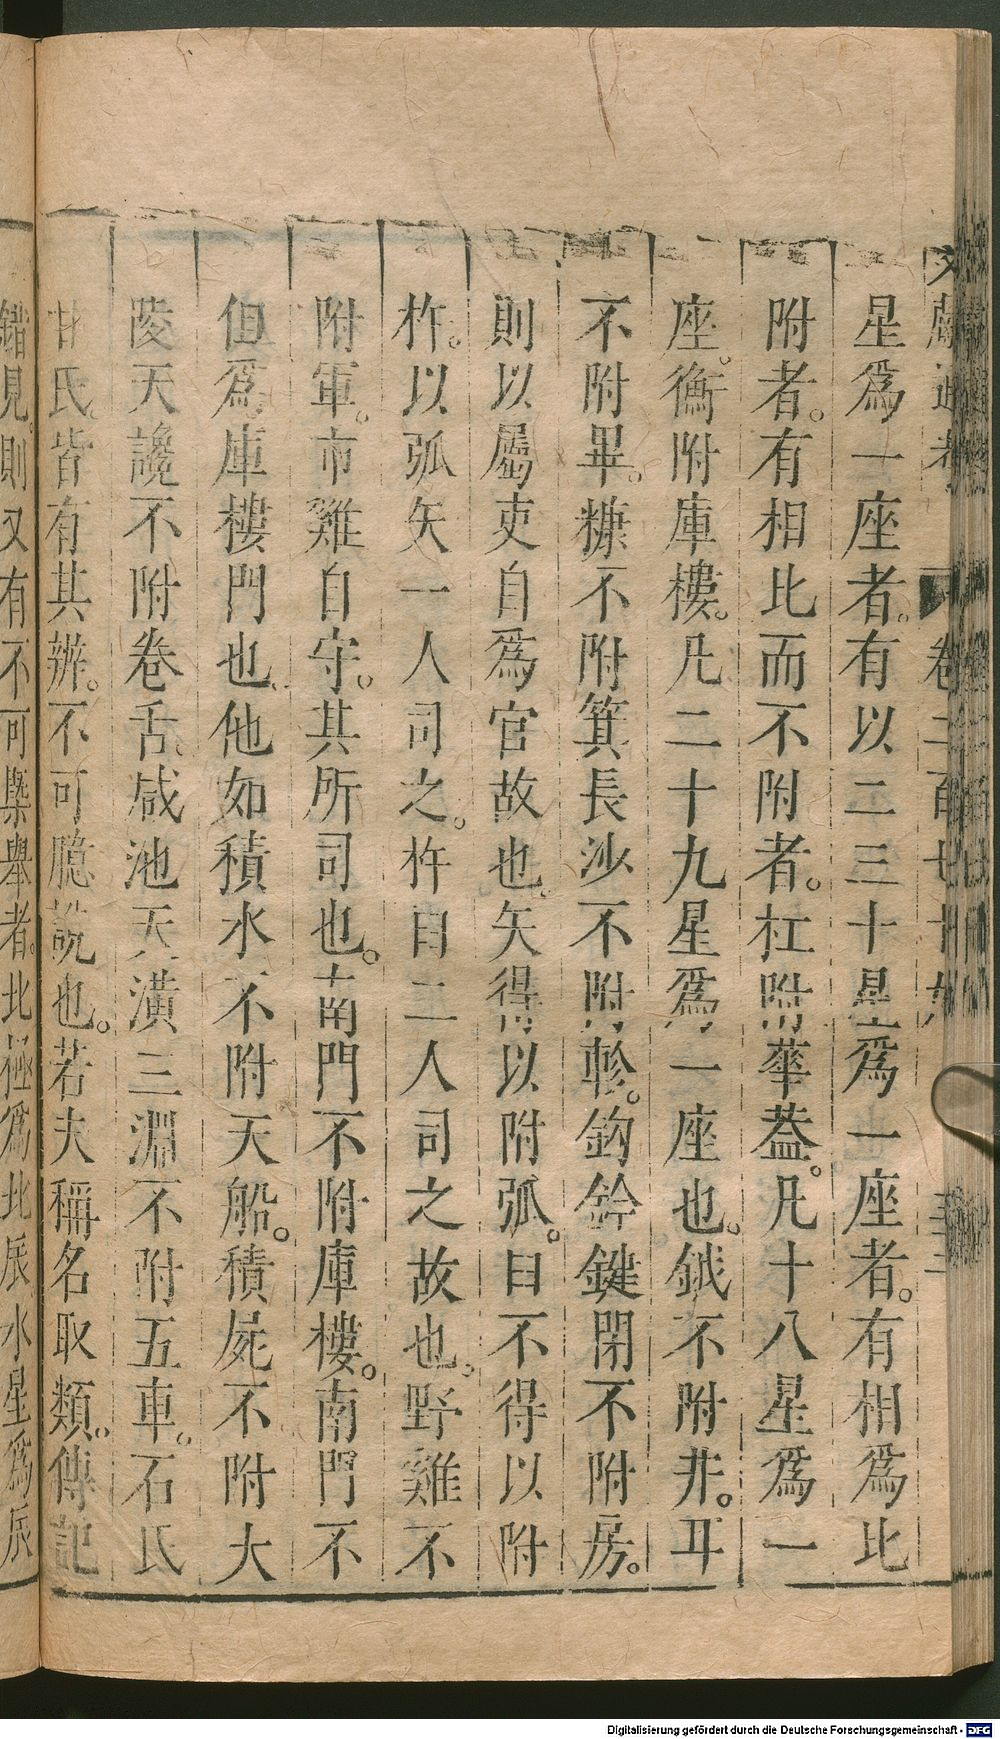 文獻通考 卷二百七十九 三二
星爲一座者。有以二三十星爲一座者。有相爲比
附者。有相比而不附者。杠附華葢。凡十八星爲一
座。衡附庫樓。凡二十九星爲一座也。鉞不附井。耳
不附畢。糠不附箕。長沙不附軫。鈎鈐鍵閉不附房。
則以屬吏自爲官故也。矢得以附弧。臼不得以附
杵。以弧矢一人司之。杵臼二人司之故也。野雞不
附軍。市雞自守。其所司也。南門不附庫樓。南門不
但爲庫樓門也。他如積水不附天船。積屍不附大
陵天讒不附卷舌。咸池天潢三淵不附五車。石氏
甘氏。皆有其辨。不可臆說也。若夫稱名取類。傳記
錯見。則又有不可槩舉者。北極爲北辰水星爲辰
Digitalisierung gefördert durch die Deutsche Forschungsgemeinschaft - DFG